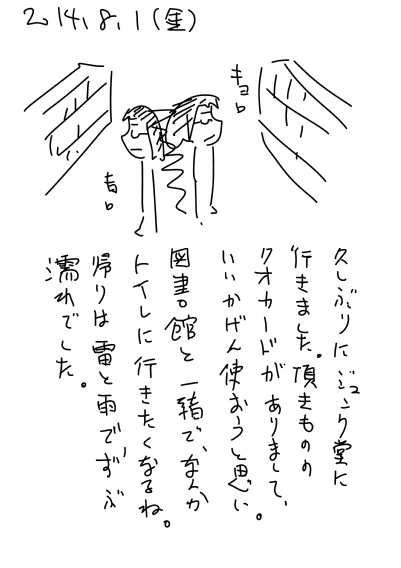 2014.8.1(金)
キョロ
キョロ
久しぶりにジュンク堂に
行きました。頂きものの
クオカードがありまして、
いいかげん使おうと思い。
図書館と一緒で、なんか
トイレに行きたくなるね。
帰りは雷と雨でずぶ
濡れでした。